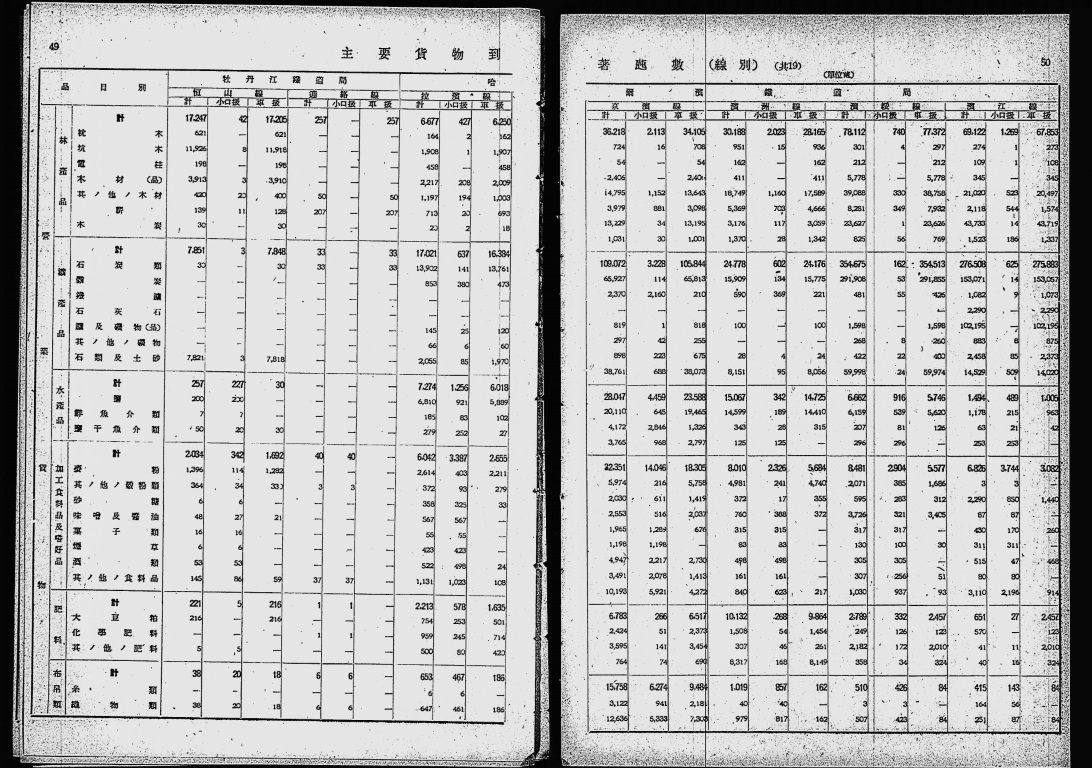 49
主要貨物到
品目別 牡丹江鐵道局 哈
恒山線 拉濱線
計 小口扱 車扱 計 小口扱 車扱 計 小口扱 車扱
營業貨物
林產品
計 17.247 42 17.205 257 — 257 6.677 427 6.250
枕木 621 — 621 — — — 164 2 162
坑木 11,926 8 11,918 — — — 1,908 1 1,907
電柱 198 — 198 — — — 458 — 458
木材(品) 3,913 3 3,910 — — — 2,217 208 2,009
其ノ他ノ木材 420 20 400 50 — 50 1,197 194 1,003
薪 139 11 128 207 — 207 713 20 693
木炭 30 — 30 — — — 20 2 18
鑛產品
計 7.851 3 7.848 33 — 33 17.021 637 16.384
石炭類 30 — 30 33 — 33 13,902 141 13,761
骸炭 — — — — — — 853 380 473
石灰石 — — — — — —
鑛及礦物(品) — — — — — — 145 25 120
其ノ他ノ礦物 — — — — — — 66 6 60
石類及土砂 7,821 3 7,818 — — — 2,055 85 1,970
水產品
計 257 227 30 — — — 7.274 1.256 6.018
鹽 200 200 — — — — 6,810 921 5,889
鮮魚介類 7 7 — — — — 185 83 102
鹽干魚介類 50 20 30 — — — 279 252 27
加工食料品及嗜好品
計 2.034 342 1.692 40 40 — 6.042 3.387 2.655
麥粉 1,396 114 1,282 — — — 2,614 403 2,211
其ノ他ノ穀粉類 364 34 330 3 3 — 372 93 279
砂糖 6 6 — — — — 358 325 33
味噌及醬油 48 27 21 — — — 567 567 —
菓子類 16 16 — — — — 55 55 —
煙草 6 6 — — — — 423 423 —
酒類 53 53 — — — — 522 498 24
其ノ他ノ食料品 145 86 59 37 37 — 1,131 1,023 108
肥料
計 221 5 216 1 1 — 2.213 578 1.635
大豆粕 216 — 216 — — — 754 253 501
化學肥料 — — — 1 1 — 959 245 714
其ノ他ノ肥料 5 5 — — — — 500 80 420
布帛類
計 38 20 18 6 6 — 653 467 186
糸類 — — — — — — 6 6 —
織物類 38 20 18 6 6 — 647 461 186
著噸數(線別)(共19) 50
(單位瓲)
爾濱鐵道局
京濱線 濱洲線 濱綏線 濱江線
計 小口扱 車扱 計 小口扱 車扱 計 小口扱 車扱 計 小口扱 車扱
36.218 2.113 34.105 30.188 2.023 28.165 78.112 740 77.372 69.122 1.269 67.853
724 16 708 951 15 936 301 4 297 274 1 273
54 — 54 162 — 162 212 — 212 109 1 108
2,406 — 2,406 411 — 411 5,778 — 5,778 345 — 345
14,795 1,152 13,643 18,749 1,160 17,589 39,088 330 38,758 21,020 523 20,497
3,979 881 3,098 5,369 703 4,666 8,281 349 7,932 2,118 544 1,574
13,229 34 13,195 3,176 117 3,059 23,627 1 23,626 43,733 14 43,719
1,031 30 1,001 1,370 28 1,342 825 56 769 1,523 186 1,337
109.072 3.228 105.844 24.778 602 24.176 354.675 162 354.513 276.508 625 275.883
65,927 114 65,813 15,909 134 15,775 291,908 53 291,855 153,071 14 153,057
2,370 2,160 210 590 369 221 481 55 426 1,082 9 1,073
— — — — — — — — — 2,290 — 2,290
819 1 818 100 — 100 1,598 — 1,598 102,195 — 102,195
297 42 255 — — — 268 8 260 883 8 875
898 223 675 28 4 24 422 22 400 2,458 85 2,373
38,761 688 38,073 8,151 95 8,056 59,998 24 59,974 14,529 509 14,020
28.047 4.459 23.588 15.067 342 14.725 6.662 916 5.746 1.494 489 1.005
20,110 645 19,465 14,599 189 14,410 6,159 539 5,620 1,178 215 963
4,172 2,846 1,326 343 28 315 207 81 126 63 21 42
3,765 968 2,797 125 125 — 296 296 — 253 253 —
32.351 14.046 18.305 8.010 2.326 5.684 8.481 2.904 5.577 6.826 3.744 3.082
5,974 216 5,758 4,981 241 4,740 2,071 385 1,686 3 3 —
2,030 611 1,419 372 17 355 595 283 312 2,290 850 1,440
2,553 516 2,037 760 388 372 3,726 321 3,405 87 87 —
1,965 1,289 676 315 315 — 317 317 — 430 170 260
1,198 1,198 — 83 83 — 130 100 30 311 311 —
4,947 2,217 2,730 498 498 — 305 305 — 515 47 468
3,491 2,078 1,413 161 161 — 307 256 51 80 80 —
10,193 5,921 4,272 840 623 217 1,030 937 93 3,110 2,196 914
6.783 266 6.517 10.132 268 9.864 2.789 332 2.457 651 27 2.457
2,424 51 2,373 1,508 54 1,454 249 126 123 570 — 123
3,595 141 3,454 307 46 261 2,182 172 2,010 41 11 2,010
764 74 690 8,317 168 8,149 358 34 324 40 16 324
15.758 6.274 9.484 1.019 857 162 510 426 84 415 143 84
3,122 941 2,181 40 40 — 3 3 — 164 56 —
12,636 5,333 7,303 979 817 162 507 423 84 251 87 84